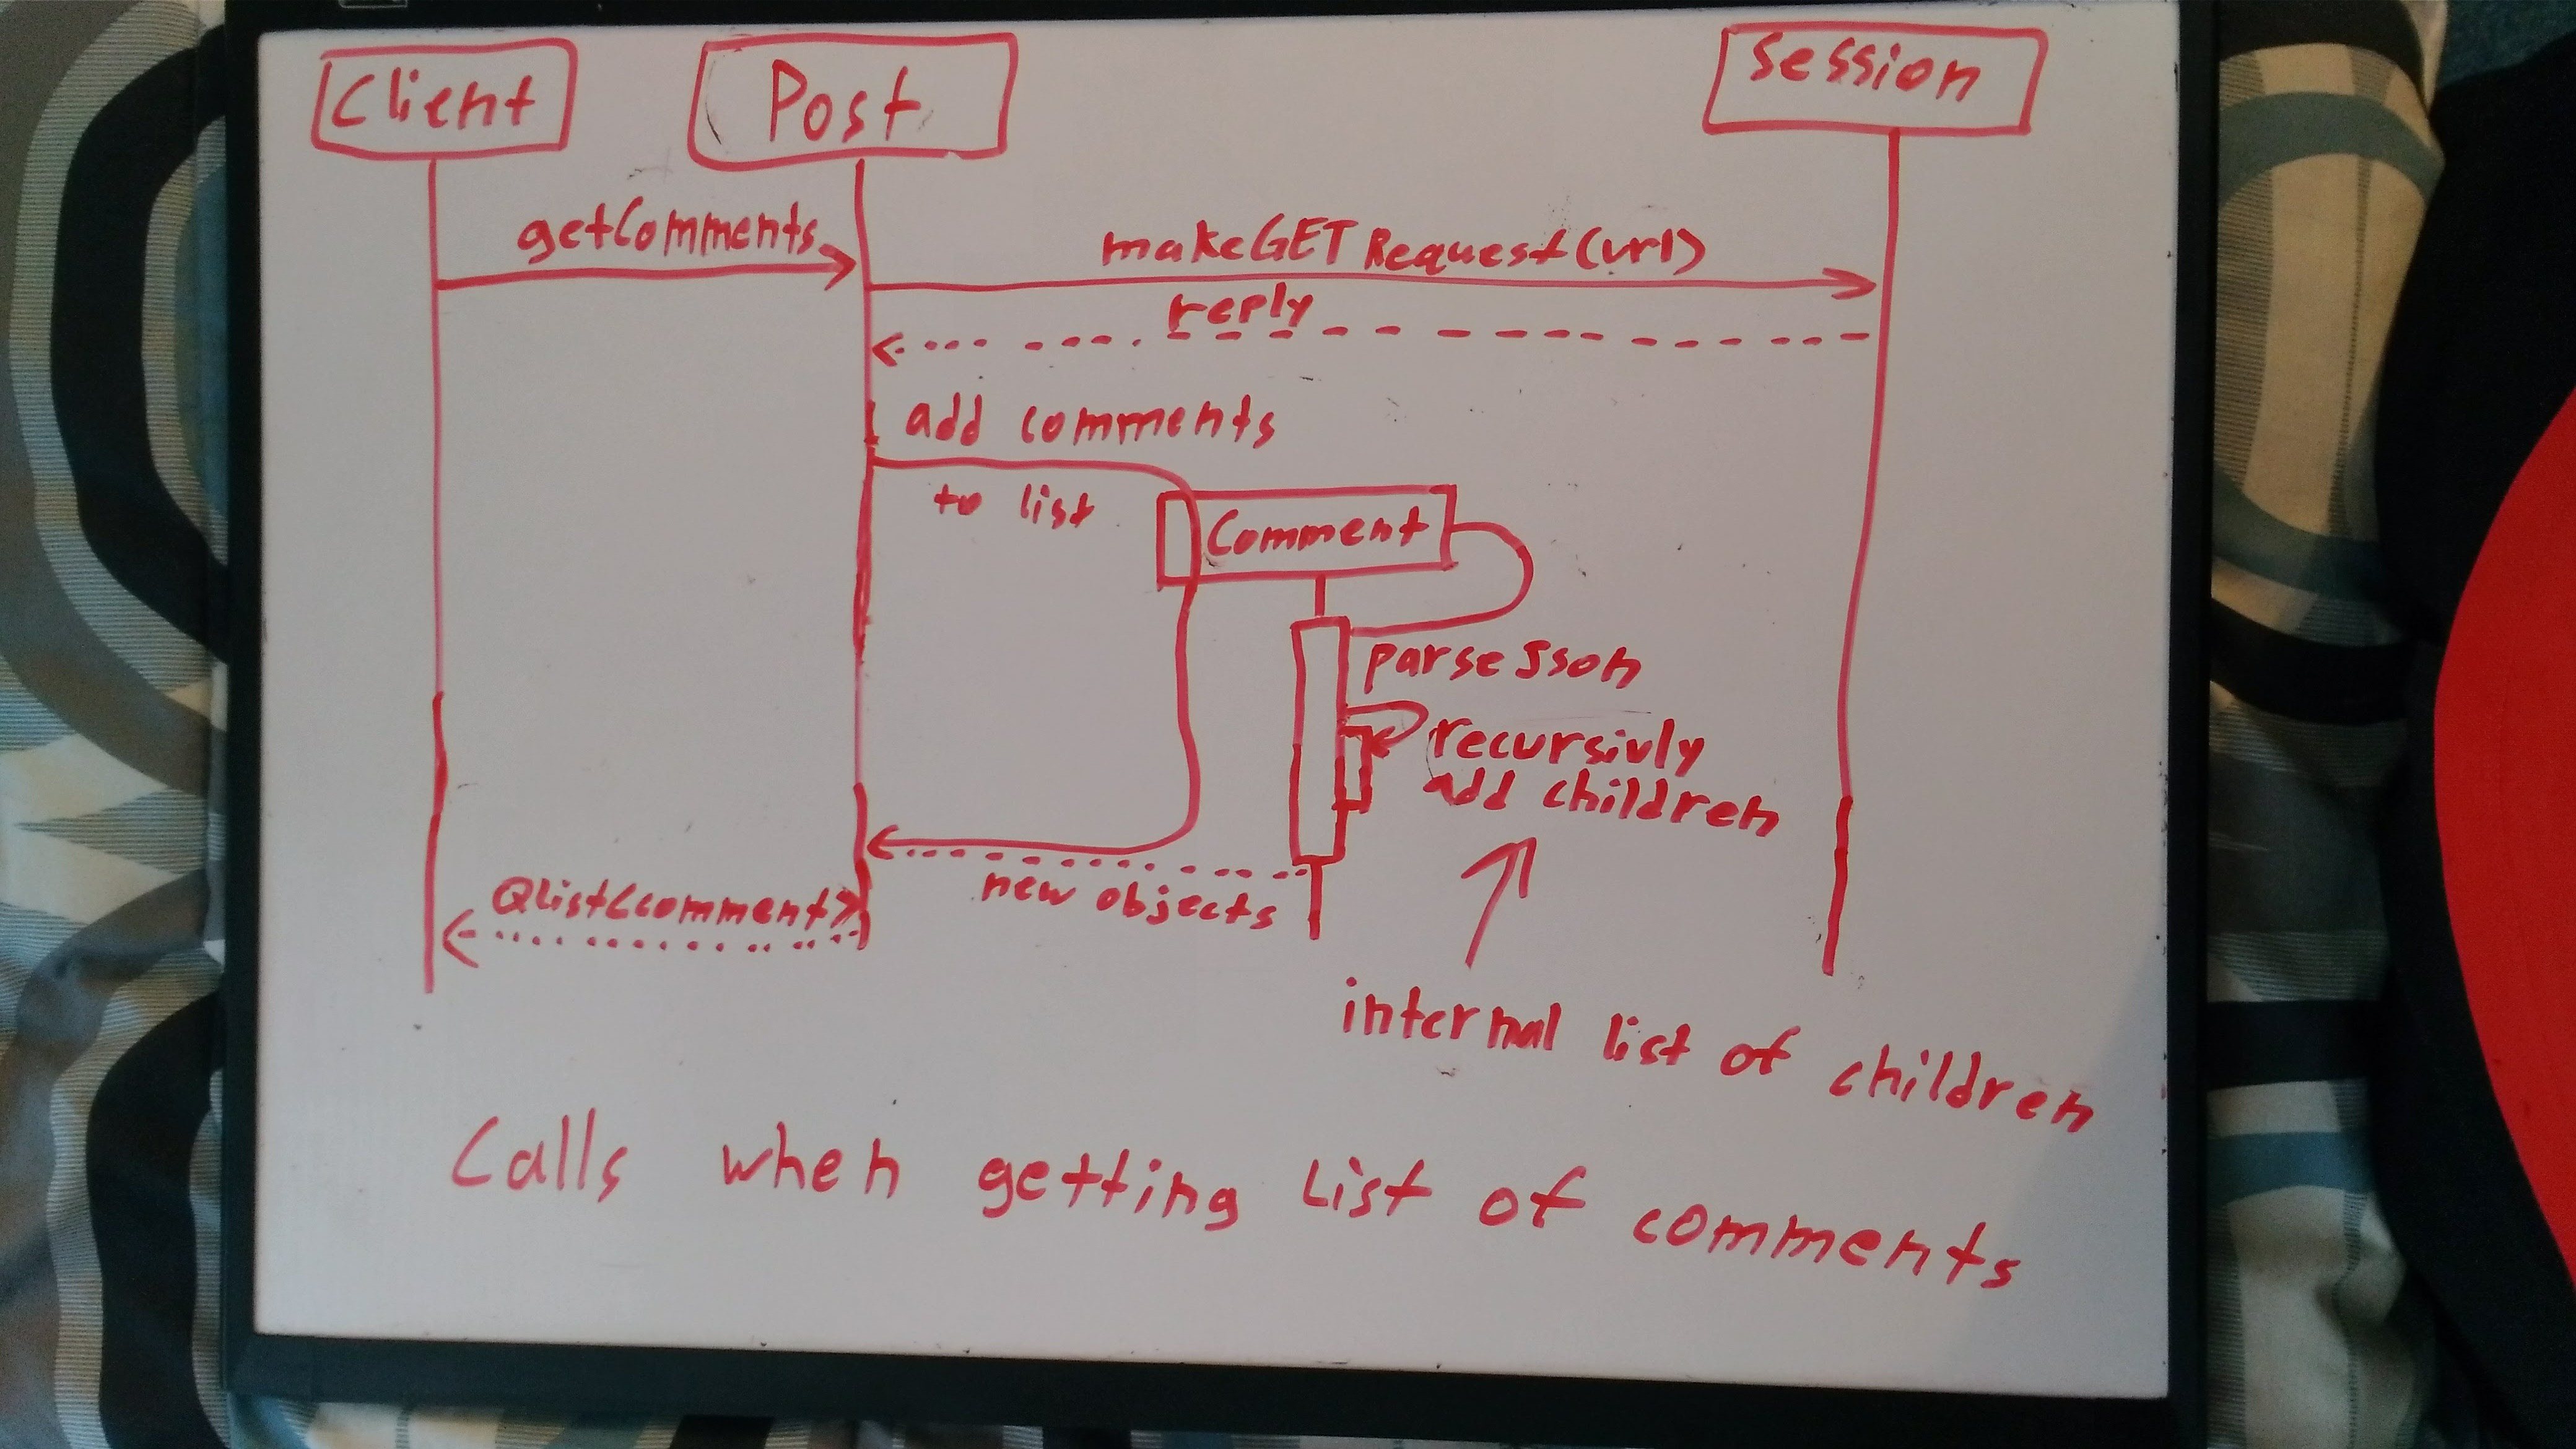 Client
Post
Session
getComments
makeGETRequest(url)
reply
add comments
to list
Comment
parseJson
recursivly
add children
new objects
QList<comment>
internal list of children
Calls when getting List of comments